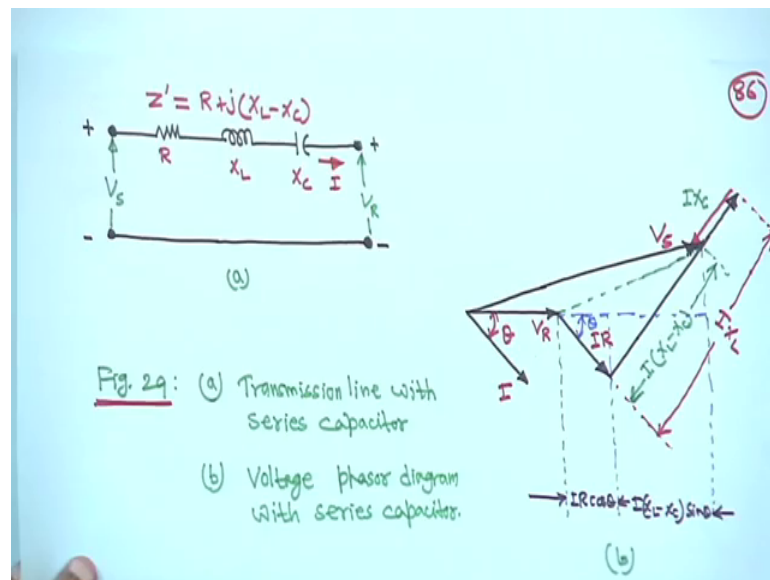 86
Z' = R+j(XL-Xc)
+
R
XL
Xc
I
+
VS
VR
-
-
(a)
IXc
VS
θ
VR
θ
IR
I(XL-Xc)
IXL
I
Fig. 29: (a) Transmission line with
series capacitor
(b) Voltage phasor diagram
with series capacitor.
IR cosθ
I(XL-Xc) sinθ
(b)